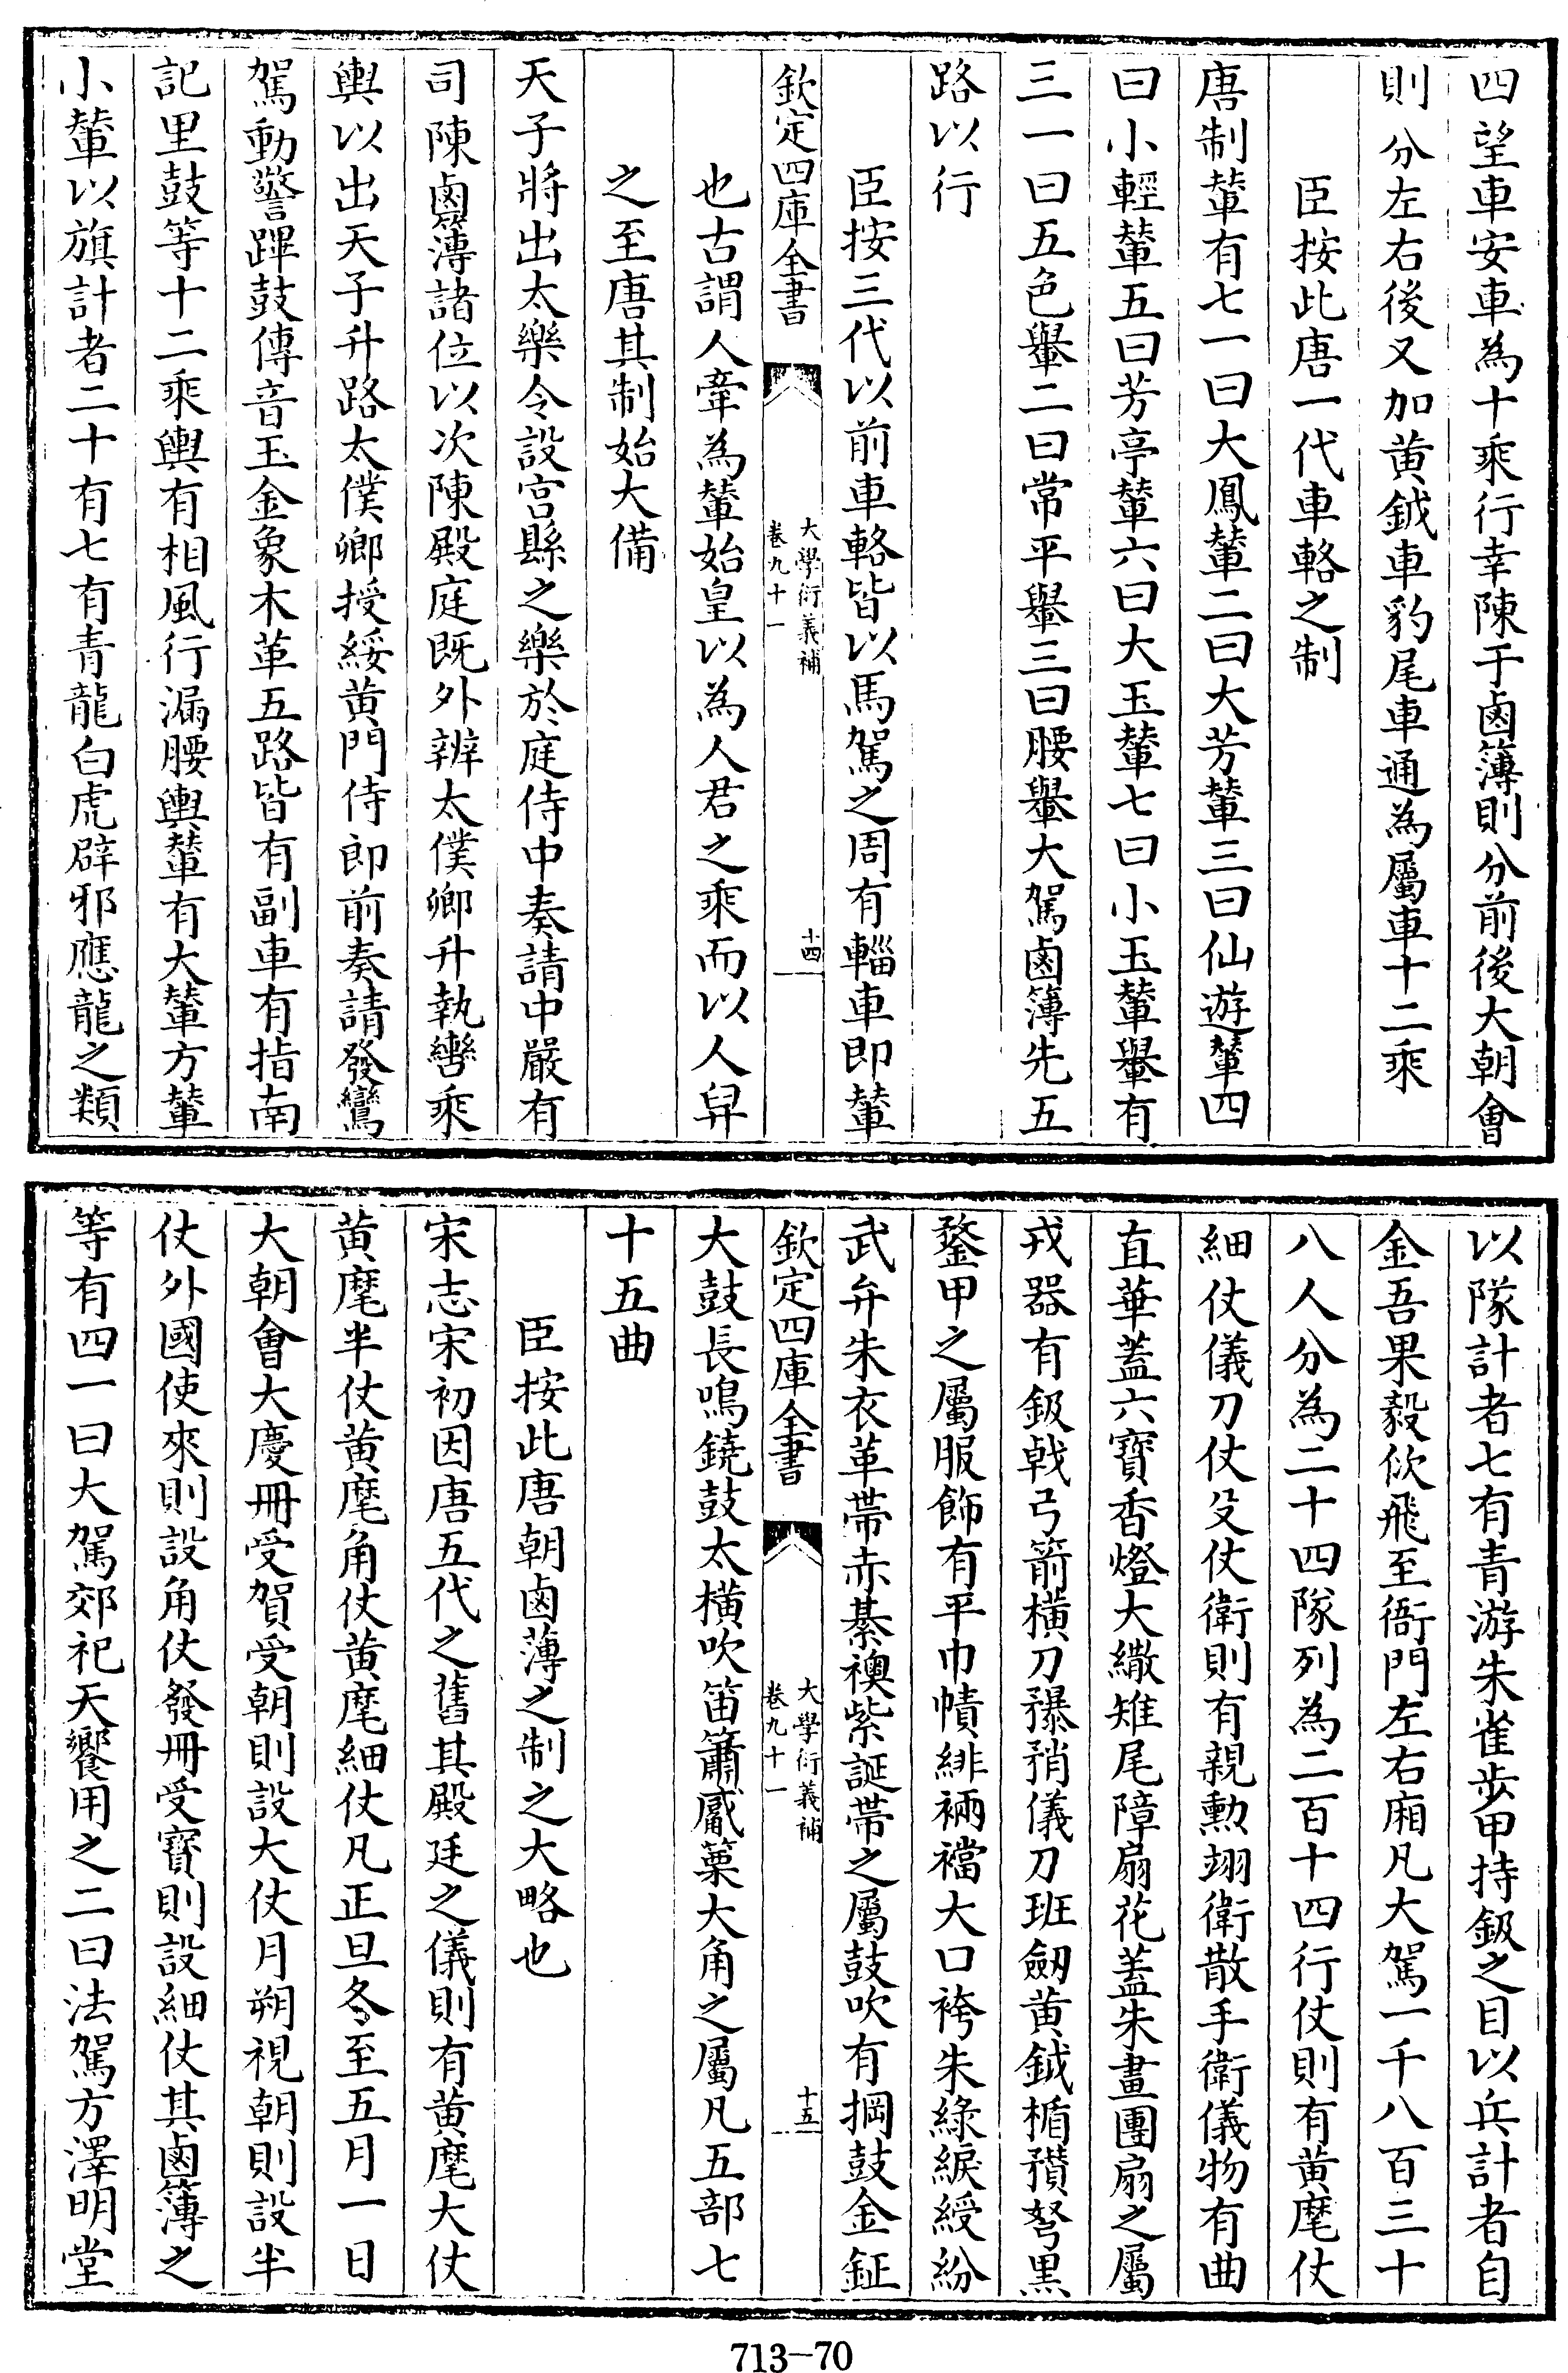 四望車安車為十乘行幸陳于鹵簿則分前後大朝會
則分左右後又加黄鉞車豹尾車通為屬車十二乘
臣按此唐一代車輅之制
唐制輦有七一曰大鳳輦二曰大芳輦三曰仙遊輦四
曰小輕輦五曰芳亭輦六曰大玉輦七曰小玉輦轝有
三一曰五色轝二曰常平轝三曰腰轝大駕鹵簿先五
路以行
臣按三代以前車輅皆以馬駕之周有輜車即輦
欽定四庫全書
大學衍義補
卷九十一
十四
也古謂人牽為輦始皇以為人君之乘而以人舁
之至唐其制始大備
天子將出太樂令設宫縣之樂於庭侍中奏請中嚴有
司陳鹵薄諸位以次陳殿庭既外辨太僕卿升執轡乘
輿以出天子升路太僕卿授綏黄門侍郎前奏請發鸞
駕動警蹕鼓傳音玉金象木革五路皆有副車有指南
記里鼓等十二乘輿有相風行漏腰輿輦有大輦方輦
小輦以旗計者二十有七有青龍白虎辟邪應龍之類
以隊計者七有青游朱雀步甲持鈒之目以兵計者自
金吾果毅佽飛至衙門左右廂凡大駕一千八百三十
八人分為二十四隊列為二百十四行仗則有黄麾仗
細仗儀刀仗殳仗衛則有親勲翊衛散手衛儀物有曲
直華蓋六寶香燈大繖雉尾障扇花蓋朱畫團扇之屬
戎器有鈒戟弓箭横刀𥎞矟儀刀班劒黄鉞楯䂎弩黒
鍪甲之屬服飾有平巾幘緋裲襠大口袴朱綠綟綬紛
武弁朱衣革帶赤綦襖紫誕帶之屬鼓吹有掆鼓金鉦
欽定四庫全書
大學衍義補
卷九十一
十五
大鼓長鳴鐃鼓太横吹笛簫觱篥大角之屬凡五部七
十五曲
臣按此唐朝鹵薄之制之大略也
宋志宋初因唐五代之舊其殿廷之儀則有黄麾大仗
黄麾半仗黄麾角仗黄麾細仗凡正旦冬至五月一日
大朝會大慶冊受賀受朝則設大仗月朔視朝則設半
仗外國使來則設角仗發冊受寳則設細仗其鹵簿之
等有四一曰大駕郊祀天饗用之二曰法駕方澤明堂
713-70